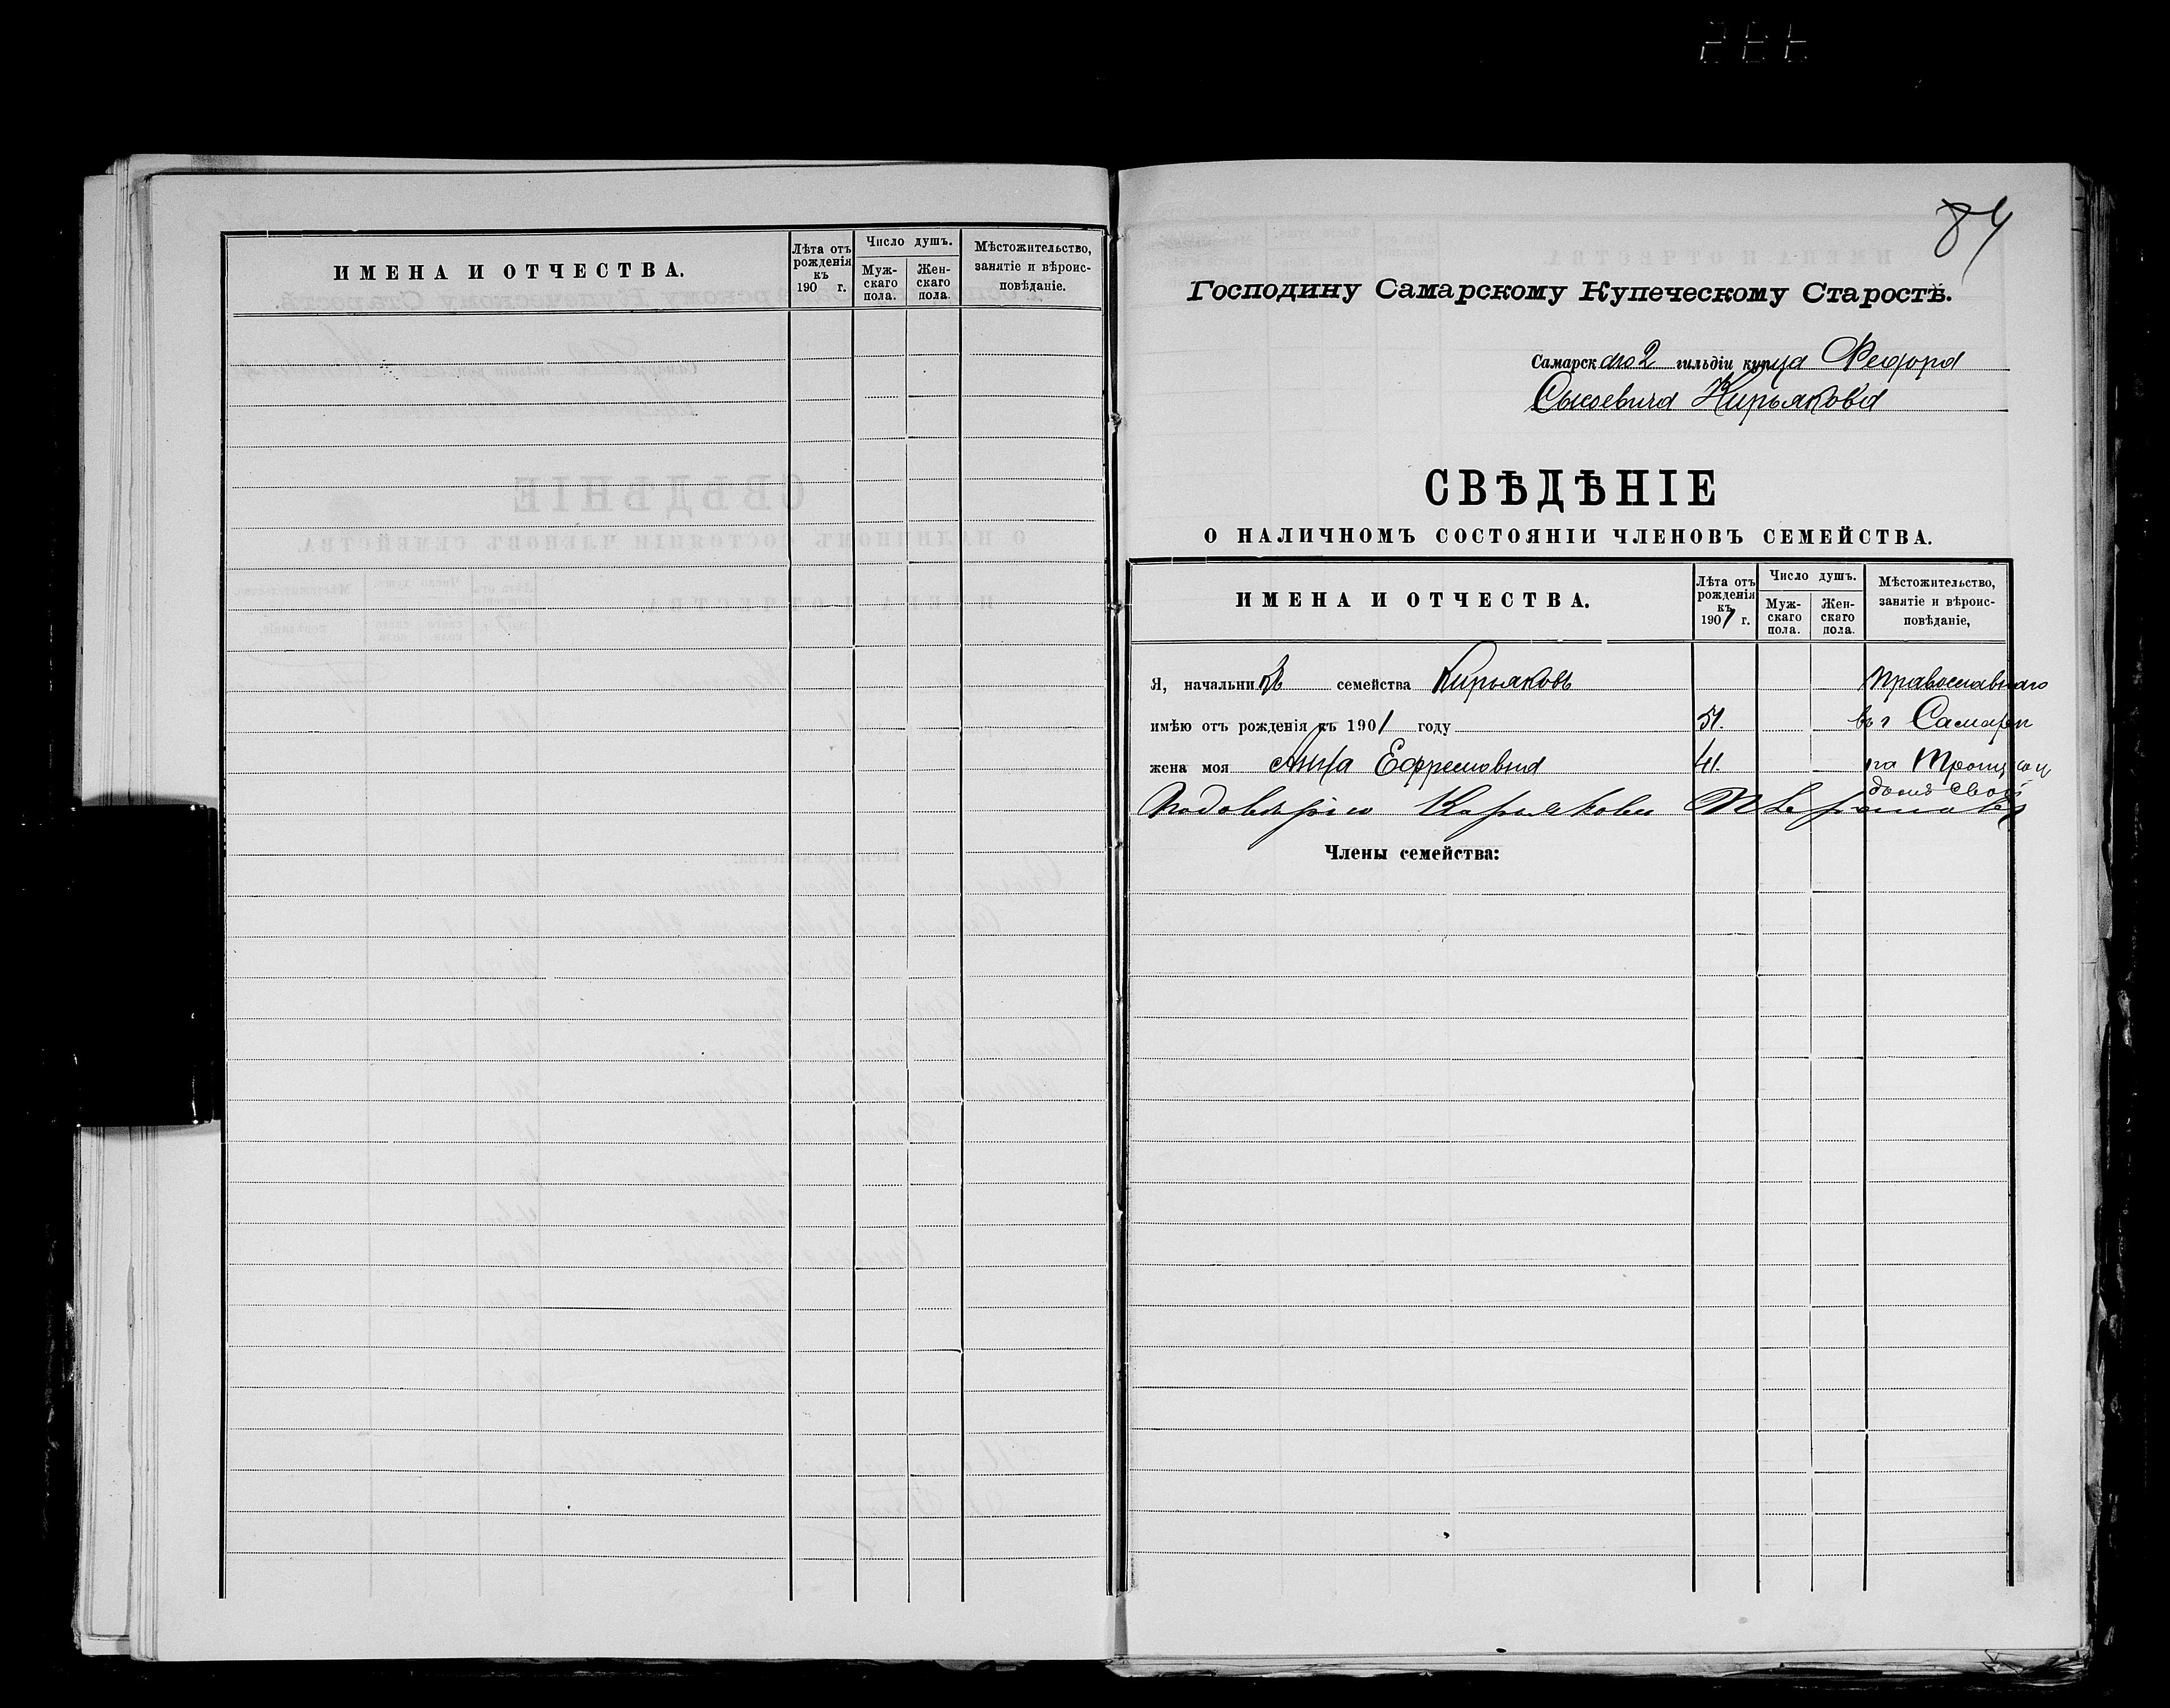 ИМЕНА И ОТЧЕСТВА.
Лѣта отъ рожденія къ 190 г.
Число душъ.
Мужскаго пола.
Женскаго пола.
Мѣстожительство, занятіе и вѣроисповѣданіе.
84
Господину Самарскому Купеческому Старостѣ.
Самарскаго 2 гильдіи купца Федора
Сысоевича Кирьякова
СВѢДѢНІЕ
О НАЛИЧНОМЪ СОСТОЯНІИ ЧЛЕНОВЪ СЕМЕЙСТВА.
ИМЕНА И ОТЧЕСТВА.
Лѣта отъ рожденія къ 1901 г.
Число душъ.
Мужскаго пола.
Женскаго пола.
Мѣстожительство, занятіе и вѣроисповѣданіе,
Я, начальникъ семейства Кирьяковъ Православнаго
имѣю отъ рожденія къ 1901 году 51. въ г Самарѣ
жена моя Анна Ефремовна 41. на Троиц
домъ свой
Подовѣрію Кирьякова
Члены семейства: